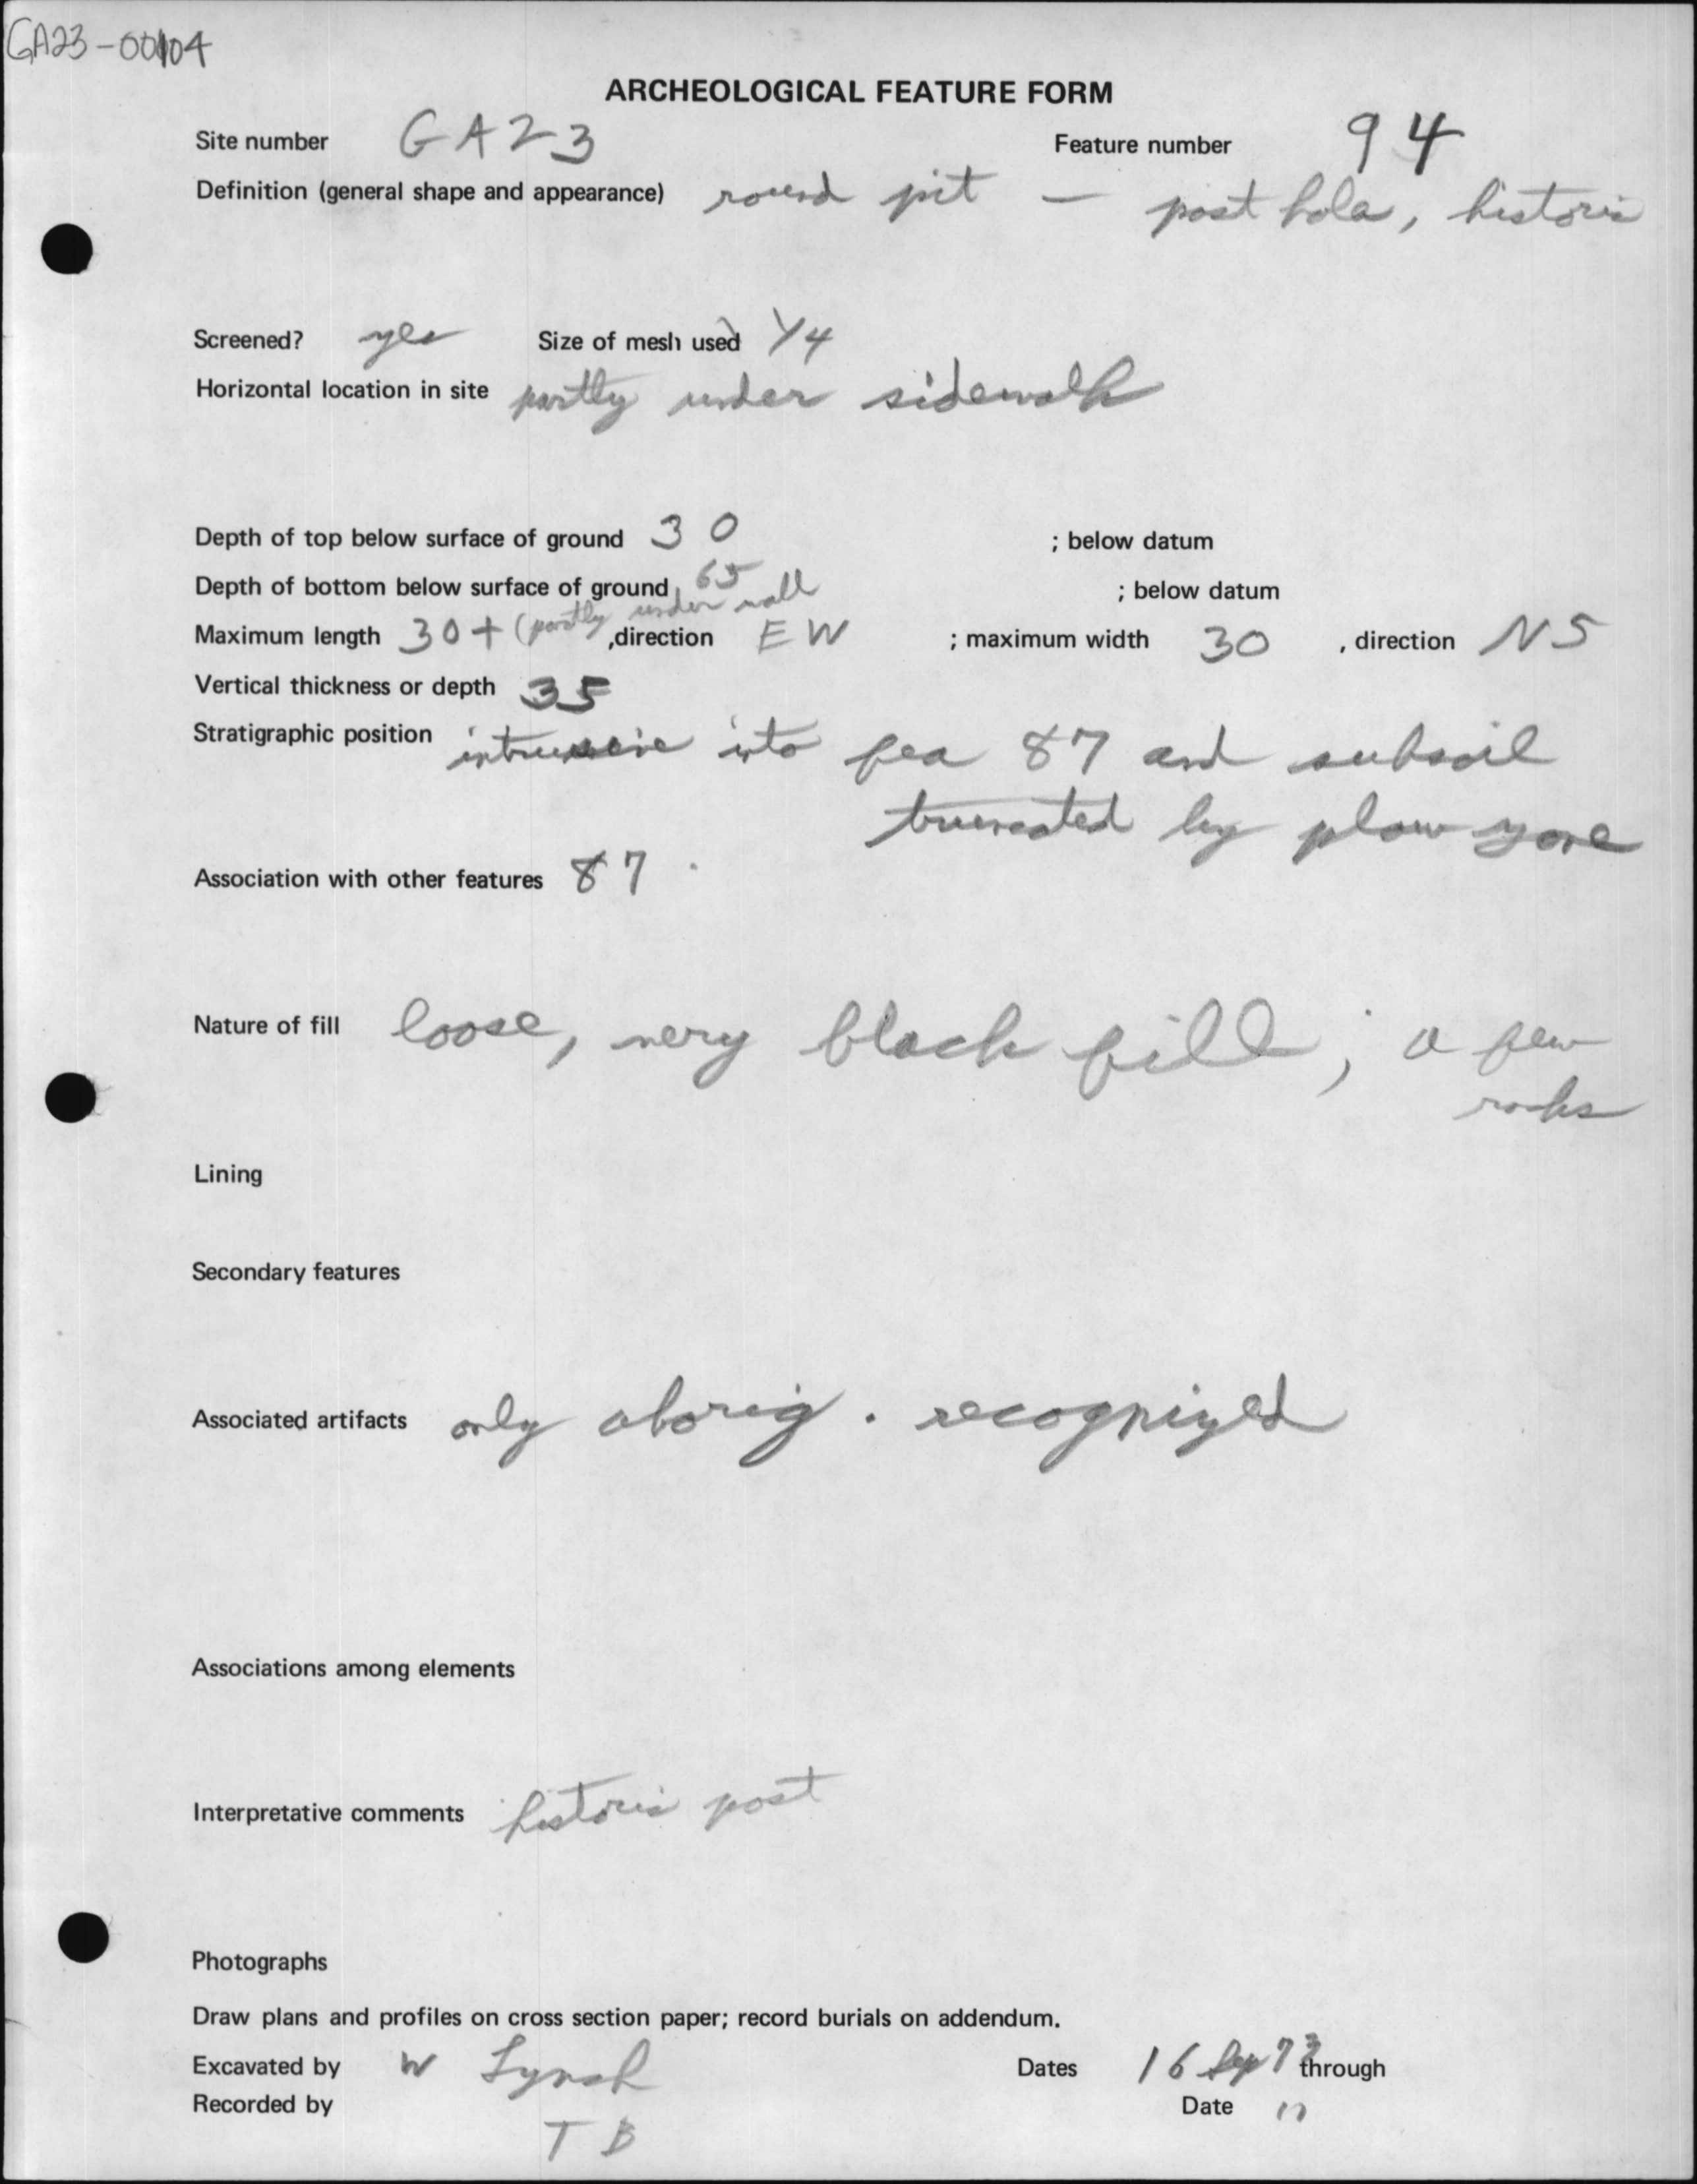 GA23-00104
ARCHEOLOGICAL FEATURE FORM
Site number GA23 Feature number 94
Definition (general shape and appearance) round pit — post hole, historic
Screened? yes Size of mesh used 1/4
Horizontal location in site partly under sidewalk
Depth of top below surface of ground 30 ; below datum
Depth of bottom below surface of ground 65 ; below datum
Maximum length 30+ (partly under wall ,direction EW ; maximum width 30 , direction NS
Vertical thickness or depth 35
Stratigraphic position intrusive into fea 87 and subsoil
truncated by plow zone
Association with other features 87
Nature of fill loose, very black fill; a few
rocks
Lining
Secondary features
Associated artifacts only aborig. recognized
Associations among elements
Interpretative comments historic post
Photographs
Draw plans and profiles on cross section paper; record burials on addendum.
Excavated by W Lynch Dates 16 Sep 73 through
Recorded by Date "
TB